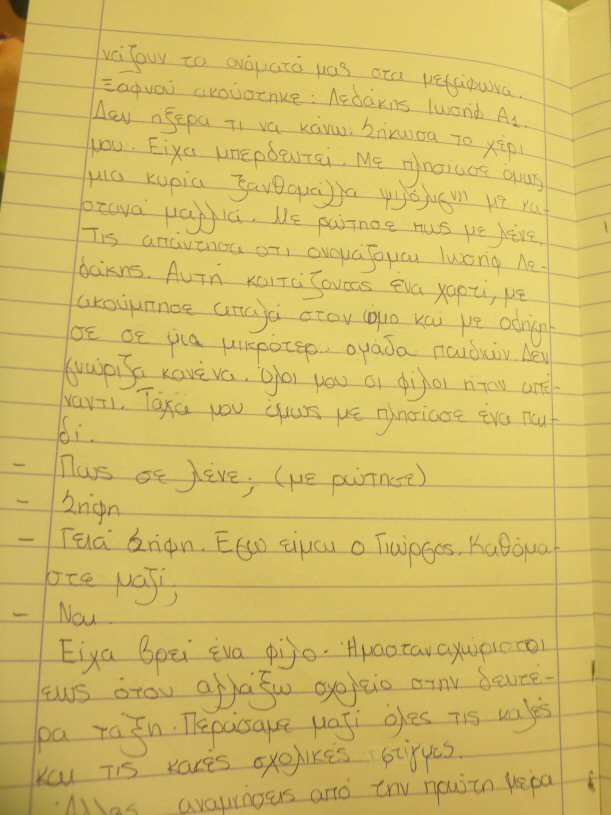 νάζουν τα ονόματά μας στα μεγάφωνα.
Ξαφνού ακούστηκε: Λεδάκης Ιωσήφ Α1.
Δεν ήξερα τι να κάνω. Σήκωσα το χέρι
μου. Είχα μπερδευτεί. Με πλησίασε όμως
μια κυρία ξανθομάλλα ψιλόλιγνη με κα-
στανά μαλλιά. Με ρώτησε πως με λένε.
Τις απάντησα οτι ονομάζομαι Ιωσήφ Λε-
δάκης. Αυτή κοιτάζοντας ένα χαρτί, με
ακούμπησε απαλά στον ώμο και με οδήγη-
σε σε μια μικρότερ ομάδα παιδιών. Δεν
γνώριζα κανένα. Όλοι μου οι φίλοι ήταν απέ-
ναντι. Τάχα μου όμως με πλησίασε ένα παι-
δί.
- Πως σε λένε; (με ρώτησε)
- Σήφη
- Γειά Σήφη. Εγω είμαι ο Γιώργος. Καθόμα-
στε μαζί;
- Ναι.
Είχα βρεί ένα φίλο. Ήμασταν αχώριστοι
εως ότου αλλάξω σχολείο στην δευτέ-
ρα τάξη. Περάσαμε μαζί όλες τις καλές
και τις κακές σχολικές στιγμες.
Άλλες αναμνήσεις από την πρώτη μέρα